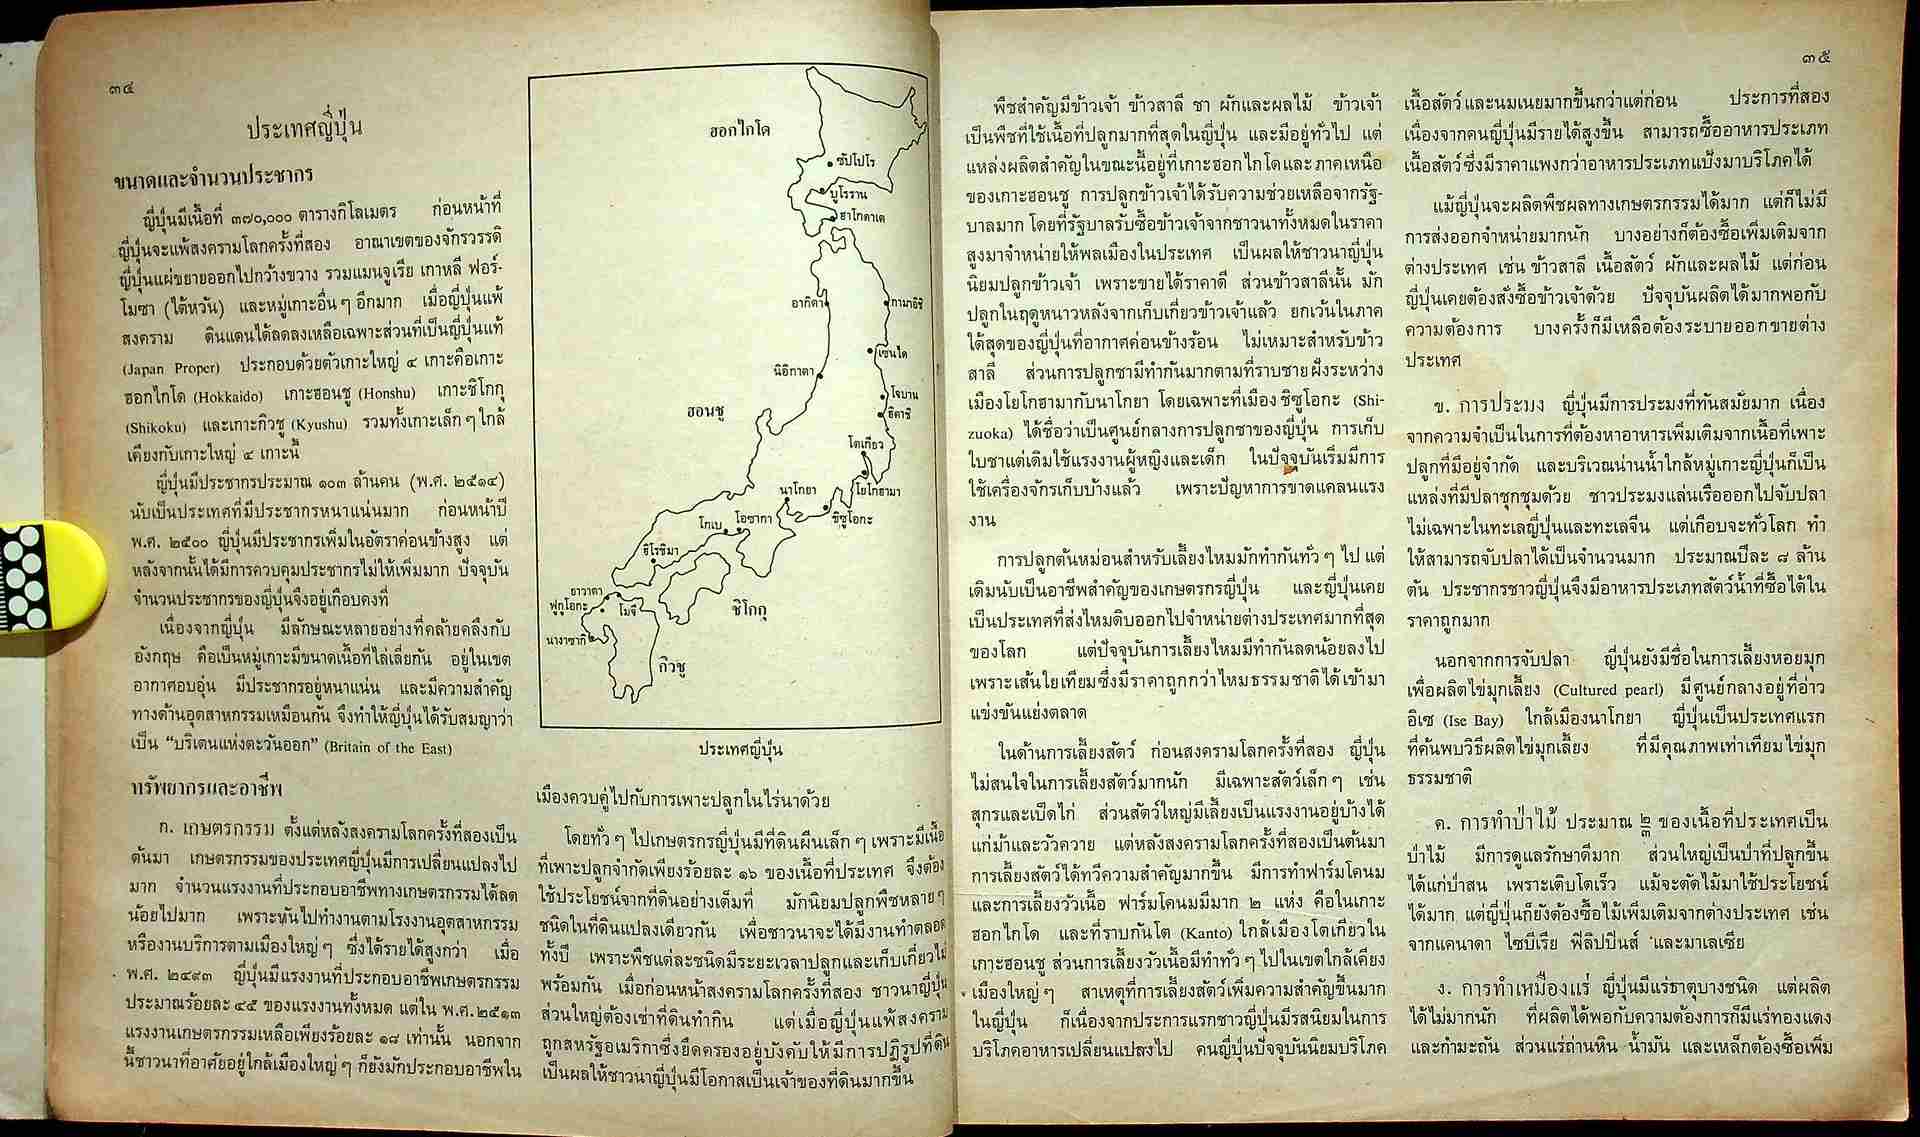 ๓๔
ประเทศญี่ปุ่น
ขนาดและจำนวนประชากร
ญี่ปุ่นมีเนื้อที่ ๓๗๐,๐๐๐ ตารางกิโลเมตร ก่อนหน้าที่
ญี่ปุ่นจะแพ้สงครามโลกครั้งที่สอง อาณาเขตของจักรวรรดิ
ญี่ปุ่นแผ่ขยายออกไปกว้างขวาง รวมแมนจูเรีย เกาหลี ฟอร์-
โมซา (ไต้หวัน) และหมู่เกาะอื่นๆ อีกมาก เมื่อญี่ปุ่นแพ้
สงคราม ดินแดนได้ลดลงเหลือเฉพาะส่วนที่เป็นญี่ปุ่นแท้
(Japan Proper) ประกอบด้วยตัวเกาะใหญ่ ๔ เกาะคือเกาะ
ฮอกไกโด (Hokkaido) เกาะฮอนชู (Honshu) เกาะชิโกกุ
(Shikoku) และเกาะกิวชู (Kyushu) รวมทั้งเกาะเล็กๆ ใกล้
เคียงกับเกาะใหญ่ ๔ เกาะนี้
ญี่ปุ่นมีประชากรประมาณ ๑๐๓ ล้านคน (พ.ศ. ๒๕๑๔)
นับเป็นประเทศที่มีประชากรหนาแน่นมาก ก่อนหน้าปี
พ.ศ. ๒๕๐๐ ญี่ปุ่นมีประชากรเพิ่มในอัตราค่อนข้างสูง แต่
หลังจากนั้นได้มีการควบคุมประชากรไม่ให้เพิ่มมาก ปัจจุบัน
จำนวนประชากรของญี่ปุ่นจึงอยู่เกือบคงที่
เนื่องจากญี่ปุ่น มีลักษณะหลายอย่างที่คล้ายคลึงกับ
อังกฤษ คือเป็นหมู่เกาะมีขนาดเนื้อที่ไล่เลี่ยกัน อยู่ในเขต
อากาศอบอุ่น มีประชากรอยู่หนาแน่น และมีความสำคัญ
ทางด้านอุตสาหกรรมเหมือนกัน จึงทำให้ญี่ปุ่นได้รับสมญาว่า
เป็น “บริเตนแห่งตะวันออก” (Britain of the East)
ทรัพยากรและอาชีพ
ก. เกษตรกรรม ตั้งแต่หลังสงครามโลกครั้งที่สองเป็น
ต้นมา เกษตรกรรมของประเทศญี่ปุ่นมีการเปลี่ยนแปลงไป
มาก จำนวนแรงงานที่ประกอบอาชีพทางเกษตรกรรมได้ลด
น้อยไปมาก เพราะหันไปทำงานตามโรงงานอุตสาหกรรม
หรืองานบริการตามเมืองใหญ่ๆ ซึ่งได้รายได้สูงกว่า เมื่อ
พ.ศ. ๒๔๙๓ ญี่ปุ่นมีแรงงานที่ประกอบอาชีพเกษตรกรรม
ประมาณร้อยละ ๔๕ ของแรงงานทั้งหมด แต่ใน พ.ศ. ๒๕๑๓
แรงงานเกษตรกรรมเหลือเพียงร้อยละ ๑๘ เท่านั้น นอกจาก
นี้ชาวนาที่อาศัยอยู่ใกล้เมืองใหญ่ๆ ก็ยังมักประกอบอาชีพใน
ฮอกไกโด
ซัปโปโร
มูโรราน
ฮาโกดาเต
อากิตา
กามาอิชิ
เซนได
นิอิกาตา
โจบาน
ฮิตาชิ
ฮอนชู
โตเกียว
โยโกฮามา
นาโกยา
ชิซูโอกะ
โกเบ
โอซากา
ฮิโรชิมา
ยาวาตา
ฟูกูโอกะ
โมจิ
นางาซากิ
ชิโกกุ
กิวชู
ประเทศญี่ปุ่น
เมืองควบคู่ไปกับการเพาะปลูกในไร่นาด้วย
โดยทั่วๆ ไปเกษตรกรญี่ปุ่นมีที่ดินผืนเล็กๆ เพราะมีเนื้อ
ที่เพาะปลูกจำกัดเพียงร้อยละ ๑๖ ของเนื้อที่ประเทศ จึงต้อง
ใช้ประโยชน์จากที่ดินอย่างเต็มที่ มักนิยมปลูกพืชหลายๆ
ชนิดในที่ดินแปลงเดียวกัน เพื่อชาวนาจะได้มีงานทำตลอด
ทั้งปี เพราะพืชแต่ละชนิดมีระยะเวลาปลูกและเก็บเกี่ยวไม่
พร้อมกัน เมื่อก่อนหน้าสงครามโลกครั้งที่สอง ชาวนาญี่ปุ่น
ส่วนใหญ่ต้องเช่าที่ดินทำกิน แต่เมื่อญี่ปุ่นแพ้สงคราม
ถูกสหรัฐอเมริกาซึ่งยึดครองอยู่บังคับให้มีการปฏิรูปที่ดิน
เป็นผลให้ชาวนาญี่ปุ่นมีโอกาสเป็นเจ้าของที่ดินมากขึ้น
๓๕
พืชสำคัญมีข้าวเจ้า ข้าวสาลี ชา ผักและผลไม้ ข้าวเจ้า
เป็นพืชที่ใช้เนื้อที่ปลูกมากที่สุดในญี่ปุ่น และมีอยู่ทั่วไป แต่
แหล่งผลิตสำคัญในขณะนี้อยู่ที่เกาะฮอกไกโดและภาคเหนือ
ของเกาะฮอนชู การปลูกข้าวเจ้าได้รับความช่วยเหลือจากรัฐ-
บาลมาก โดยที่รัฐบาลรับซื้อข้าวเจ้าจากชาวนาทั้งหมดในราคา
สูงมาจำหน่ายให้พลเมืองในประเทศ เป็นผลให้ชาวนาญี่ปุ่น
นิยมปลูกข้าวเจ้า เพราะขายได้ราคาดี ส่วนข้าวสาลีนั้น มัก
ปลูกในฤดูหนาวหลังจากเก็บเกี่ยวข้าวเจ้าแล้ว ยกเว้นในภาค
ใต้สุดของญี่ปุ่นที่อากาศค่อนข้างร้อน ไม่เหมาะสำหรับข้าว
สาลี ส่วนการปลูกชามีทำกันมากตามที่ราบชายฝั่งระหว่าง
เมืองโยโกฮามากับนาโกยา โดยเฉพาะที่เมืองชิซูโอกะ (Shi-
zuoka) ได้ชื่อว่าเป็นศูนย์กลางการปลูกชาของญี่ปุ่น การเก็บ
ใบชาแต่เดิมใช้แรงงานผู้หญิงและเด็ก ในปัจจุบันเริ่มมีการ
ใช้เครื่องจักรเก็บบ้างแล้ว เพราะปัญหาการขาดแคลนแรง
งาน
การปลูกต้นหม่อนสำหรับเลี้ยงไหมมักทำกันทั่วๆ ไป แต่
เดิมนับเป็นอาชีพสำคัญของเกษตรกรญี่ปุ่น และญี่ปุ่นเคย
เป็นประเทศที่ส่งไหมดิบออกไปจำหน่ายต่างประเทศมากที่สุด
ของโลก แต่ปัจจุบันการเลี้ยงไหมมีทำกันลดน้อยลงไป
เพราะเส้นใยเทียมซึ่งมีราคาถูกกว่าไหมธรรมชาติได้เข้ามา
แข่งขันแย่งตลาด
ในด้านการเลี้ยงสัตว์ ก่อนสงครามโลกครั้งที่สอง ญี่ปุ่น
ไม่สนใจในการเลี้ยงสัตว์มากนัก มีเฉพาะสัตว์เล็กๆ เช่น
สุกรและเป็ดไก่ ส่วนสัตว์ใหญ่มีเลี้ยงเป็นแรงงานอยู่บ้างได้
แก่ม้าและวัวควาย แต่หลังสงครามโลกครั้งที่สองเป็นต้นมา
การเลี้ยงสัตว์ได้ทวีความสำคัญมากขึ้น มีการทำฟาร์มโคนม
และการเลี้ยงวัวเนื้อ ฟาร์มโคนมมีมาก ๒ แห่ง คือในเกาะ
ฮอกไกโด และที่ราบกันโต (Kanto) ใกล้เมืองโตเกียวใน
เกาะฮอนชู ส่วนการเลี้ยงวัวเนื้อมีทำทั่วๆ ไปในเขตใกล้เคียง
เมืองใหญ่ๆ สาเหตุที่การเลี้ยงสัตว์เพิ่มความสำคัญขึ้นมาก
ในญี่ปุ่น ก็เนื่องจากประการแรกชาวญี่ปุ่นมีรสนิยมในการ
บริโภคอาหารเปลี่ยนแปลงไป คนญี่ปุ่นปัจจุบันนิยมบริโภค
เนื้อสัตว์และนมเนยมากขึ้นกว่าแต่ก่อน ประการที่สอง
เนื่องจากคนญี่ปุ่นมีรายได้สูงขึ้น สามารถซื้ออาหารประเภท
เนื้อสัตว์ซึ่งมีราคาแพงกว่าอาหารประเภทแป้งมาบริโภคได้
แม้ญี่ปุ่นจะผลิตพืชผลทางเกษตรกรรมได้มาก แต่ก็ไม่มี
การส่งออกจำหน่ายมากนัก บางอย่างก็ต้องซื้อเพิ่มเติมจาก
ต่างประเทศ เช่น ข้าวสาลี เนื้อสัตว์ ผักและผลไม้ แต่ก่อน
ญี่ปุ่นเคยต้องสั่งซื้อข้าวเจ้าด้วย ปัจจุบันผลิตได้มากพอกับ
ความต้องการ บางครั้งก็มีเหลือต้องระบายออกขายต่าง
ประเทศ
ข. การประมง ญี่ปุ่นมีการประมงที่ทันสมัยมาก เนื่อง
จากความจำเป็นในการที่ต้องหาอาหารเพิ่มเติมจากเนื้อที่เพาะ
ปลูกที่มีอยู่จำกัด และบริเวณน่านน้ำใกล้หมู่เกาะญี่ปุ่นก็เป็น
แหล่งที่มีปลาชุกชุมด้วย ชาวประมงแล่นเรือออกไปจับปลา
ไม่เฉพาะในทะเลญี่ปุ่นและทะเลจีน แต่เกือบจะทั่วโลก ทำ
ให้สามารถจับปลาได้เป็นจำนวนมาก ประมาณปีละ ๘ ล้าน
ตัน ประชากรชาวญี่ปุ่นจึงมีอาหารประเภทสัตว์น้ำที่ซื้อได้ใน
ราคาถูกมาก
นอกจากการจับปลา ญี่ปุ่นยังมีชื่อในการเลี้ยงหอยมุก
เพื่อผลิตไข่มุกเลี้ยง (Cultured pearl) มีศูนย์กลางอยู่ที่อ่าว
อิเซ (Ise Bay) ใกล้เมืองนาโกยา ญี่ปุ่นเป็นประเทศแรก
ที่ค้นพบวิธีผลิตไข่มุกเลี้ยง ที่มีคุณภาพเท่าเทียมไข่มุก
ธรรมชาติ
ค. การทำป่าไม้ ประมาณ ๒/๓ ของเนื้อที่ประเทศเป็น
ป่าไม้ มีการดูแลรักษาดีมาก ส่วนใหญ่เป็นป่าที่ปลูกขึ้น
ได้แก่ป่าสน เพราะเติบโตเร็ว แม้จะตัดไม้มาใช้ประโยชน์
ได้มาก แต่ญี่ปุ่นก็ยังต้องซื้อไม้เพิ่มเติมจากต่างประเทศ เช่น
จากแคนาดา ไซบีเรีย ฟิลิปปินส์ และมาเลเซีย
ง. การทำเหมืองแร่ ญี่ปุ่นมีแร่ธาตุบางชนิด แต่ผลิต
ได้ไม่มากนัก ที่ผลิตได้พอกับความต้องการก็มีแร่ทองแดง
และกำมะถัน ส่วนแร่ถ่านหิน น้ำมัน และเหล็กต้องซื้อเพิ่ม